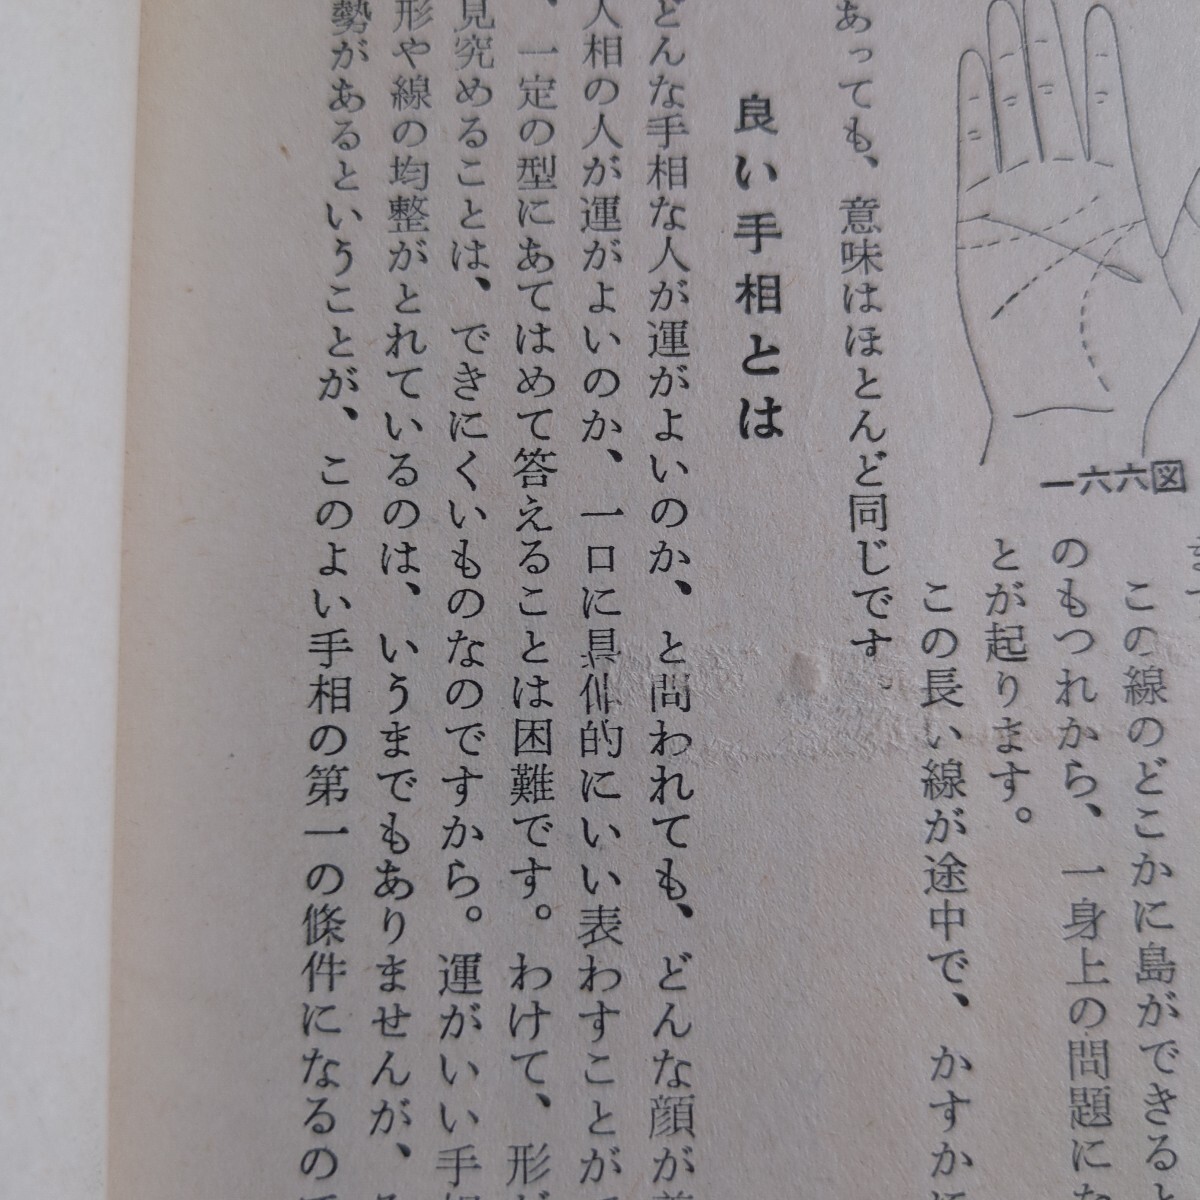 一六六図
この線のどこかに島ができると
のもつれから、一身上の問題に
とが起ります。
この長い線が途中で、かすか
あっても、意味はほとんど同じです。
良い手相とは
どんな手相な人が運がよいのか、と問われても、どんな顔が
人相の人が運がよいのか、一口に具体的にいい表わすことが
、一定の型にあてはめて答えることは困難です。わけて、形
見究めることは、できにくいものなのですから。運がいい手
形や線の均整がとれているのは、いうまでもありませんが、
勢があるということが、このよい手相の第一の條件になるの